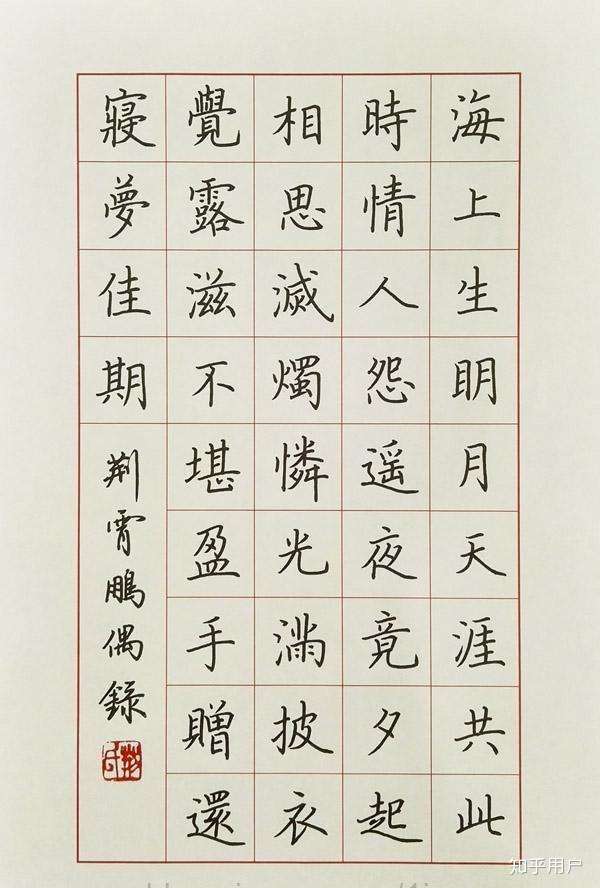 海上生明月天涯共此
時情人怨遥夜竟夕起
相思滅燭憐光滿披衣
覺露滋不堪盈手贈還
寢夢佳期
荆霄鵬偶錄
知乎用户